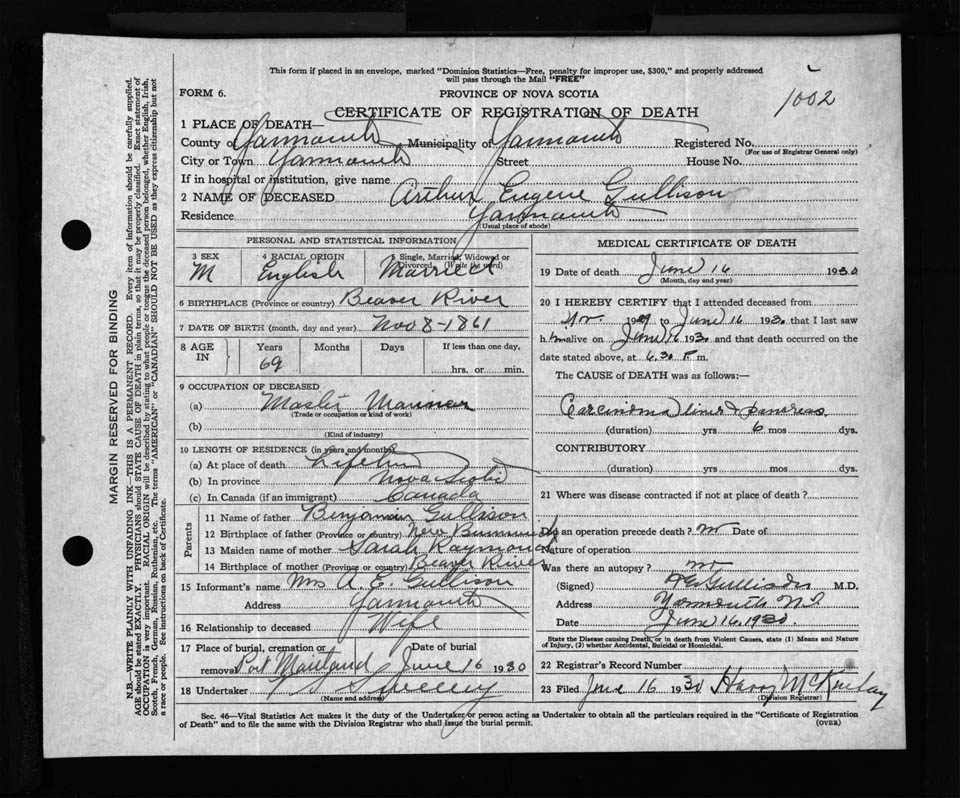 This form if placed in an envelope, marked "Dominion Statistics—Free, penalty for improper use, $300," and properly addressed
will pass through the Mail "FREE"
FORM 6.
PROVINCE OF NOVA SCOTIA
1002
CERTIFICATE OF REGISTRATION OF DEATH
1 PLACE OF DEATH—
County of Yarmouth Municipality of Yarmouth Registered No.
(For use of Registrar General only)
City or Town Yarmouth Street House No.
If in hospital or institution, give name
2 NAME OF DECEASED Arthur Eugene Gullison
Residence Yarmouth
(Usual place of abode)
PERSONAL AND STATISTICAL INFORMATION
3 SEX 4 RACIAL ORIGIN 5 Single, Married, Widowed or
Divorced (Write the word)
M English Married
6 BIRTHPLACE (Province or country) Beaver River
7 DATE OF BIRTH (month, day and year) Nov 8 - 1861
8 AGE IN Years Months Days If less than one day,
69 hrs. or min.
9 OCCUPATION OF DECEASED
(a) Master Mariner
(Trade or occupation or kind of work)
(b)
(Kind of industry)
10 LENGTH OF RESIDENCE (in years and months)
(a) At place of death Lifetime
(b) In province Nova Scotia
(c) In Canada (if an immigrant) Canada
Parents
11 Name of father Benjamin Gullison
12 Birthplace of father (Province or country) New Brunswick
13 Maiden name of mother Sarah Raymond
14 Birthplace of mother (Province or country) Beaver River
15 Informant's name Mrs A. E. Gullison
Address Yarmouth
16 Relationship to deceased Wife
17 Place of burial, cremation or Date of burial
removal Port Maitland June 16 1930
18 Undertaker Sweeny
(Name and address)
MEDICAL CERTIFICATE OF DEATH
19 Date of death June 16 1930
(Month, day and year)
20 I HEREBY CERTIFY that I attended deceased from
19 to June 16 1930 that I last saw
him alive on June 16 1930 and that death occurred on the
date stated above, at 6.30 P. m.
The CAUSE of DEATH was as follows:—
Carcinoma liver & pancreas
(duration) yrs 6 mos dys.
CONTRIBUTORY
(duration) yrs mos dys.
21 Where was disease contracted if not at place of death?
Did an operation precede death? no Date of
Nature of operation
Was there an autopsy? no
(Signed) M.D.
Address Yarmouth N.S.
Date June 16, 1930.
State the Disease causing Death, or in death from Violent Causes, state (1) Means and Nature
of Injury, (2) whether Accidental, Suicidal or Homicidal.
22 Registrar's Record Number
23 Filed June 16 1930 Harry
(Division Registrar)
Sec. 46—Vital Statistics Act makes it the duty of the Undertaker or person acting as Undertaker to obtain all the particulars required in the "Certificate of Registration
of Death" and to file the same with the Division Registrar who shall issue the burial permit.
(OVER)
MARGIN RESERVED FOR BINDING
N.B.—WRITE PLAINLY WITH UNFADING INK—THIS IS A PERMANENT RECORD. Every item of information should be carefully supplied.
AGE should be stated EXACTLY. PHYSICIANS should STATE CAUSE OF DEATH in plain terms, so that it may be properly classified. Exact statement of
OCCUPATION is very important. RACIAL ORIGIN will be described by stating to what people or tongue the deceased person belonged, whether English, Irish,
Scotch, French, German, Russian, Ruthenian, etc. The terms "AMERICAN" or "CANADIAN" SHOULD NOT BE USED as they express citizenship but not
a race or people. See instructions on back of Certificate.